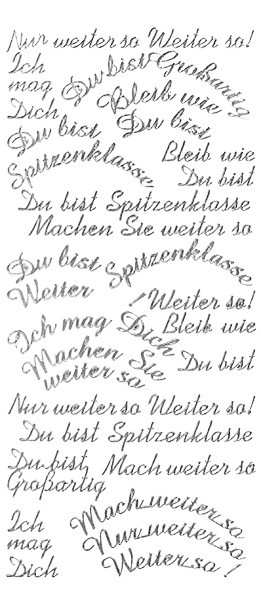 Nur weiter so Weiter so!
Ich mag Dich
Du bist Großartig
Bleib wie Du bist
Du bist Spitzenklasse
Bleib wie Du bist
Du bist Spitzenklasse
Machen Sie weiter so
Du bist Spitzenklasse
Weiter
! Weiter so!
Ich mag Dich
Bleib wie Du bist
Machen Sie weiter so
Nur weiter so Weiter so!
Du bist Spitzenklasse
Du bist Großartig
Mach weiter so
Ich mag Dich
Mach weiter so
Nur weiter so
Weiter so!